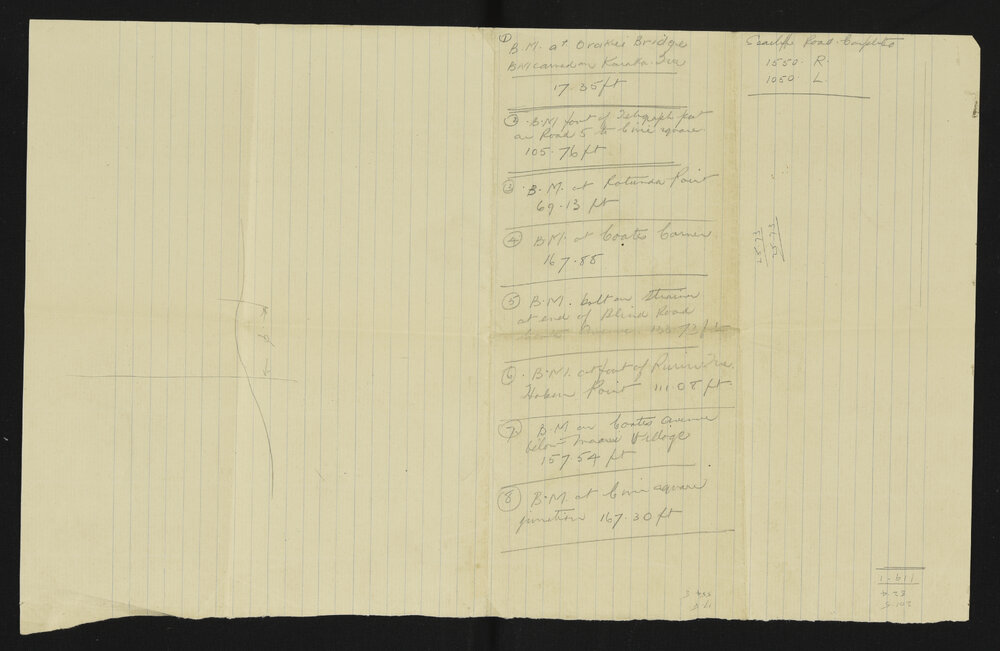 ①
B.M. at Orakei Bridge
BM carved on Karaka Tree
17.35 ft
② B.M. foot of Telegraph post
on Road 5 to Civic square.
105.76 ft
③ B.M. at Rotunda Point
69.13 ft
④ B.M. at Coates Corner
167.88
⑤ B.M. bolt on Strainer
at end of Blind Road
Avenue 133.73 ft
⑥ B.M. at foot of Puriri Tree.
Hobson Point 111.08 ft
⑦ B.M. on Coates Avenue
below Maori Village
157.54 ft
⑧ B.M. at Civic square
junction 167.30 ft
Seacliffe Road Completed
1550. R.
1050 L.
25.73
25.73